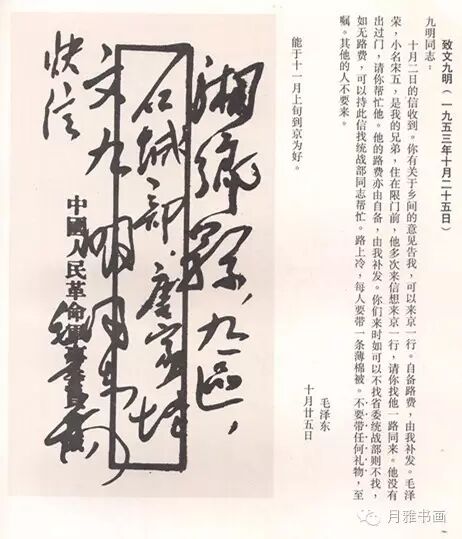 致文九明(一九五三年十月二十五日)
九明同志:
十月二日的信收到。你有关于乡间的意见告我,可以来京一行。自备路费,由我补发。毛泽
荣,小名宋五,是我的兄弟,住在限门前,他多次来信想来京一行,请你找他一路同来。他没有
出过门,请你帮忙他。他的路费亦由自备,由我补发。你们来时如可以不找省委统战部则不找,
如无路费,可以持此信找统战部同志帮忙。路上冷,每人要带一条薄棉被。不要带任何礼物,至
嘱。其他的人不要来。
毛泽东
十月廿五日
能于十一月上旬到京为好。
湘鄉縣,九區,
石城部,唐家
文九明同志
快信
中國人民革命軍事委員會
月雅书画